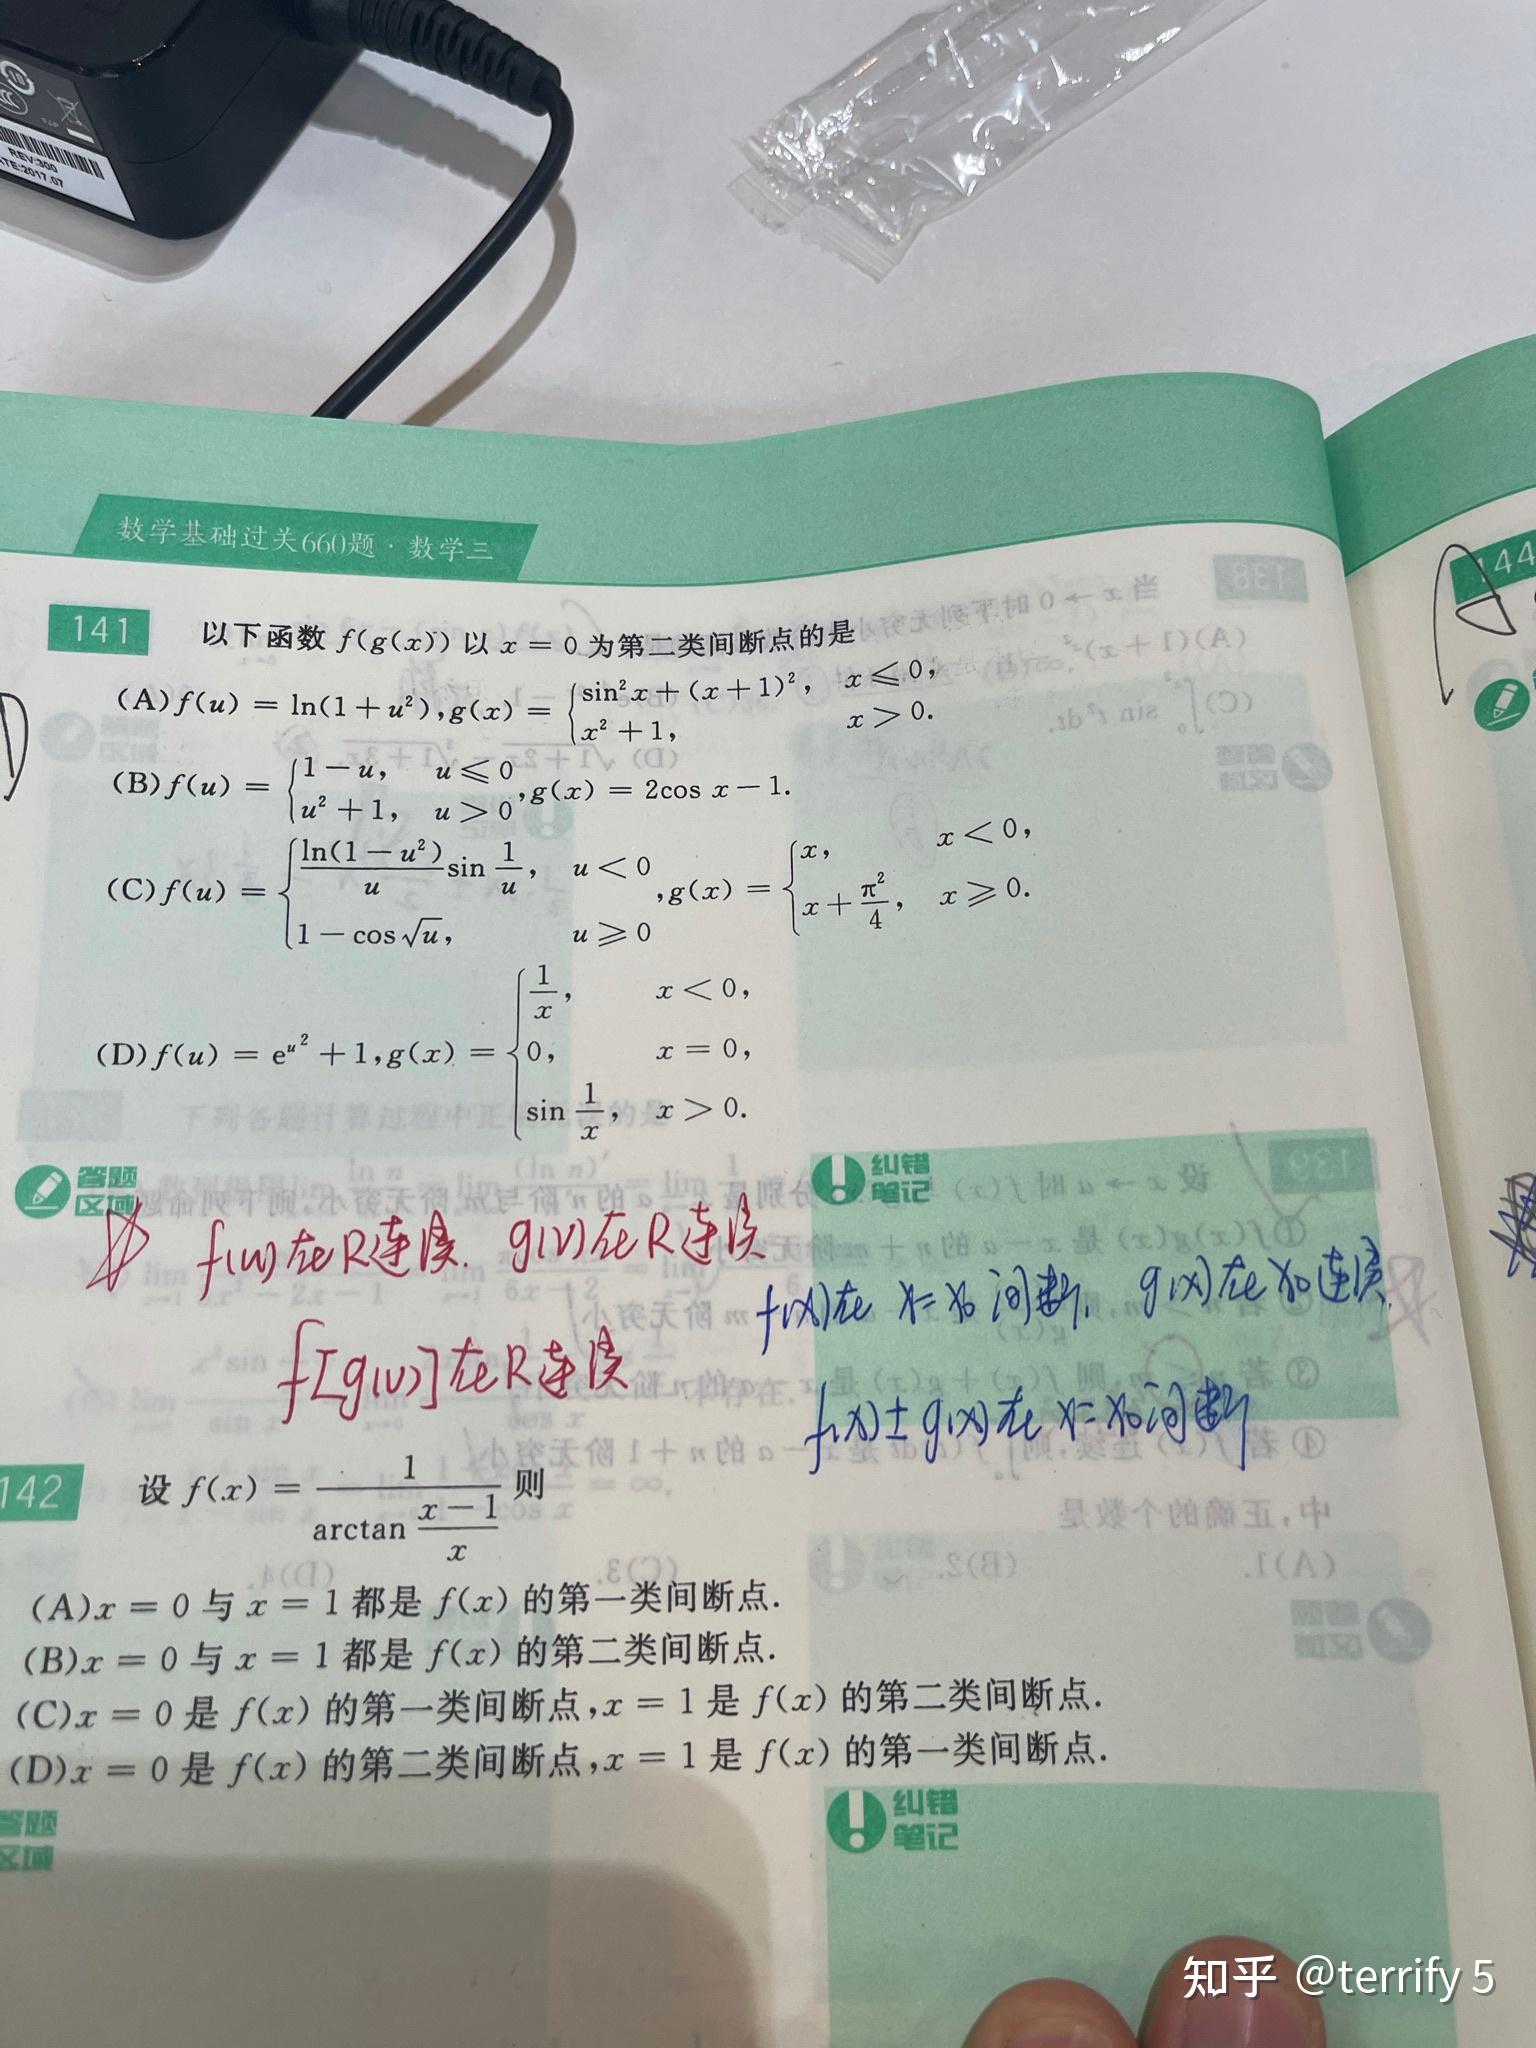 REV:300
ATE:2017.07
数学基础过关660题·数学三
141 以下函数 f(g(x)) 以 x = 0 为第二类间断点的是
(A) f(u) = ln(1 + u²), g(x) = { sin²x + (x + 1)², x ⩽ 0,
x² + 1, x > 0.
(B) f(u) = { 1 − u, u ⩽ 0
u² + 1, u > 0 , g(x) = 2cos x − 1.
(C) f(u) = { ln(1 − u²)/u sin 1/u, u < 0
1 − cos √u, u ⩾ 0 , g(x) = { x, x < 0,
x + π²/4, x ⩾ 0.
(D) f(u) = e^{u²} + 1, g(x) = { 1/x, x < 0,
0, x = 0,
sin 1/x, x > 0.
答题
区域
纠错
笔记
f(u)在R连续. g(x)在R连续
f[g(x)]在R连续
f(x)在 x=x₀ 间断, g(x)在x₀连续,
f(x)±g(x)在x=x₀间断
142 设 f(x) = 1/(arctan (x − 1)/x) 则
(A) x = 0 与 x = 1 都是 f(x) 的第一类间断点.
(B) x = 0 与 x = 1 都是 f(x) 的第二类间断点.
(C) x = 0 是 f(x) 的第一类间断点, x = 1 是 f(x) 的第二类间断点.
(D) x = 0 是 f(x) 的第二类间断点, x = 1 是 f(x) 的第一类间断点.
答题
区域
纠错
笔记
144
知乎 @terrify 5